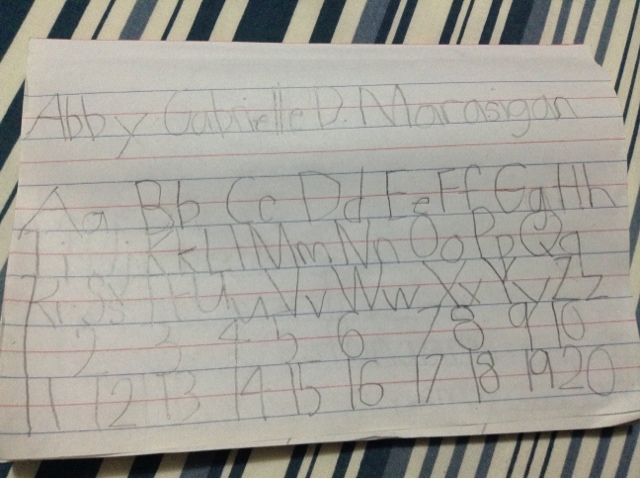 Abby Gabrielle D. Marasigan
Aa Bb Cc Dd Ee Ff Gg Hh
Ii Jj Kk Ll Mm Nn Oo Pp Qq
Rr Ss Tt Uu Vv Ww Xx Yy Zz
1 2 3 4 5 6 7 8 9 10
11 12 13 14 15 16 17 18 19 20